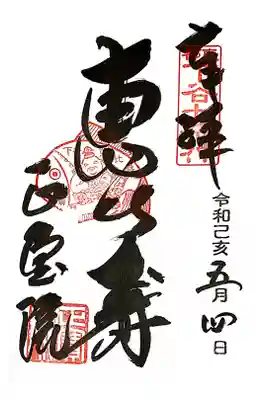 奉拝
令和己亥五月四日
恵比寿
正宝院